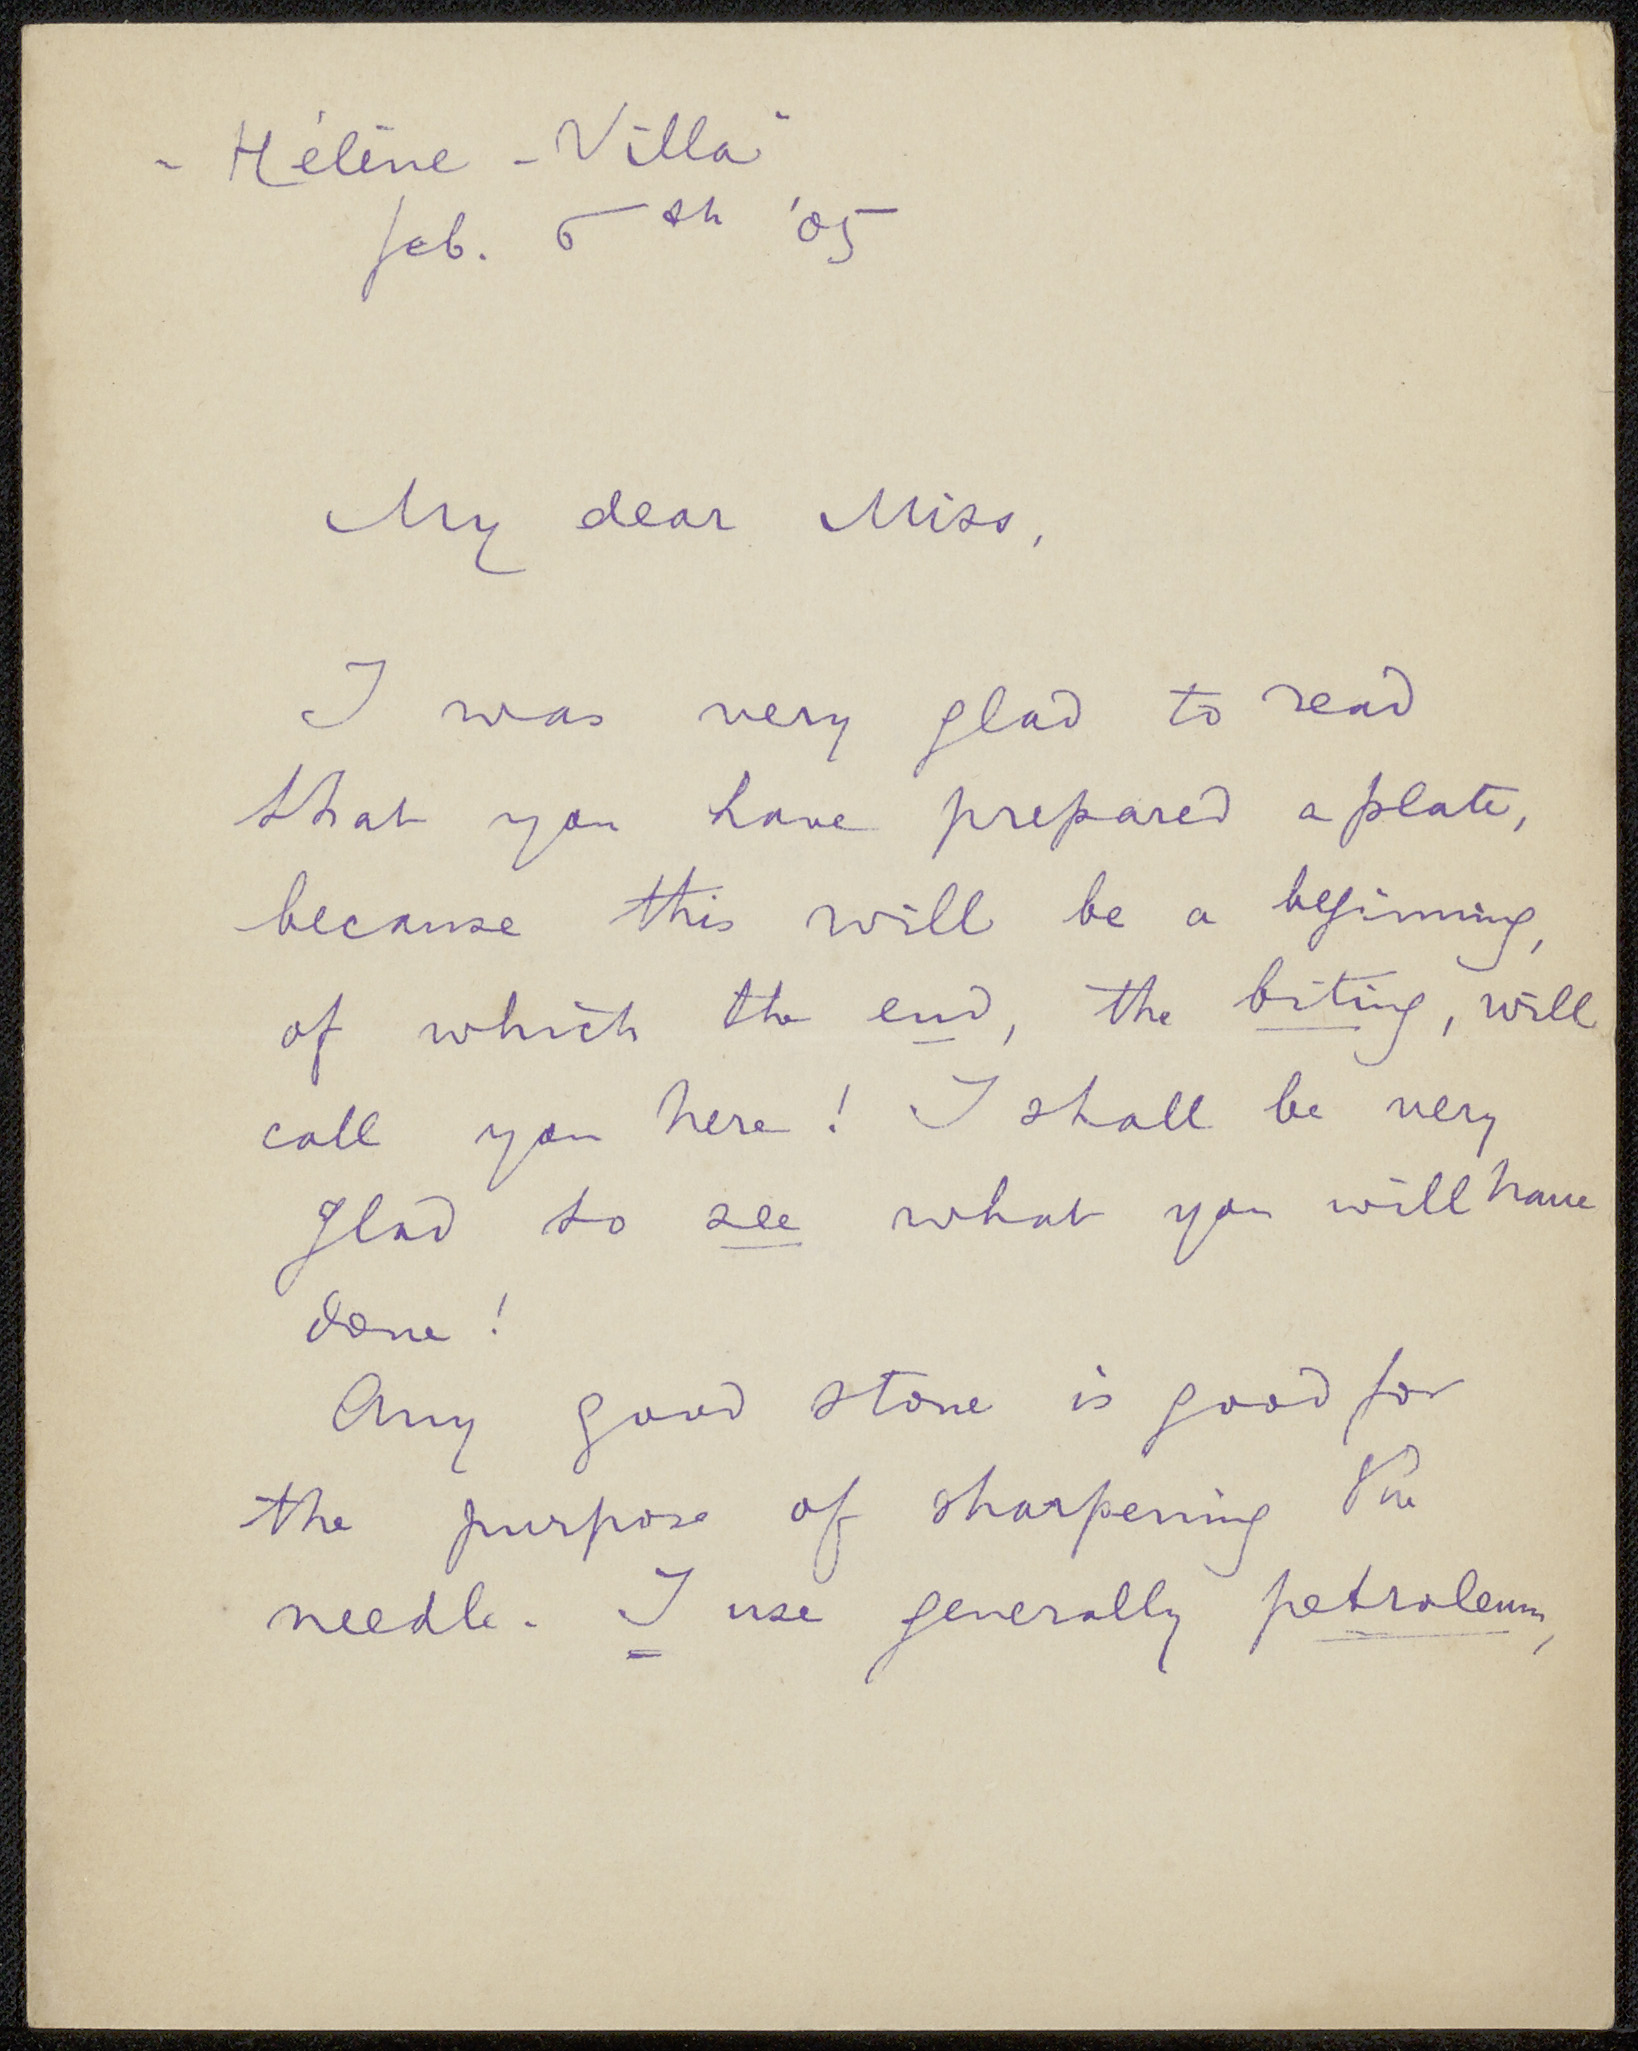 "Hélène-Villa"
Feb. 6th '05
My dear Miss,
I was very glad to read
that you have prepared a plate,
because this will be a beginning,
of which the end, the biting, will
call you here! I shall be very
glad to see what you will have
done!
Any good stone is good for
the purpose of sharpening the
needle. I use generally petroleum,